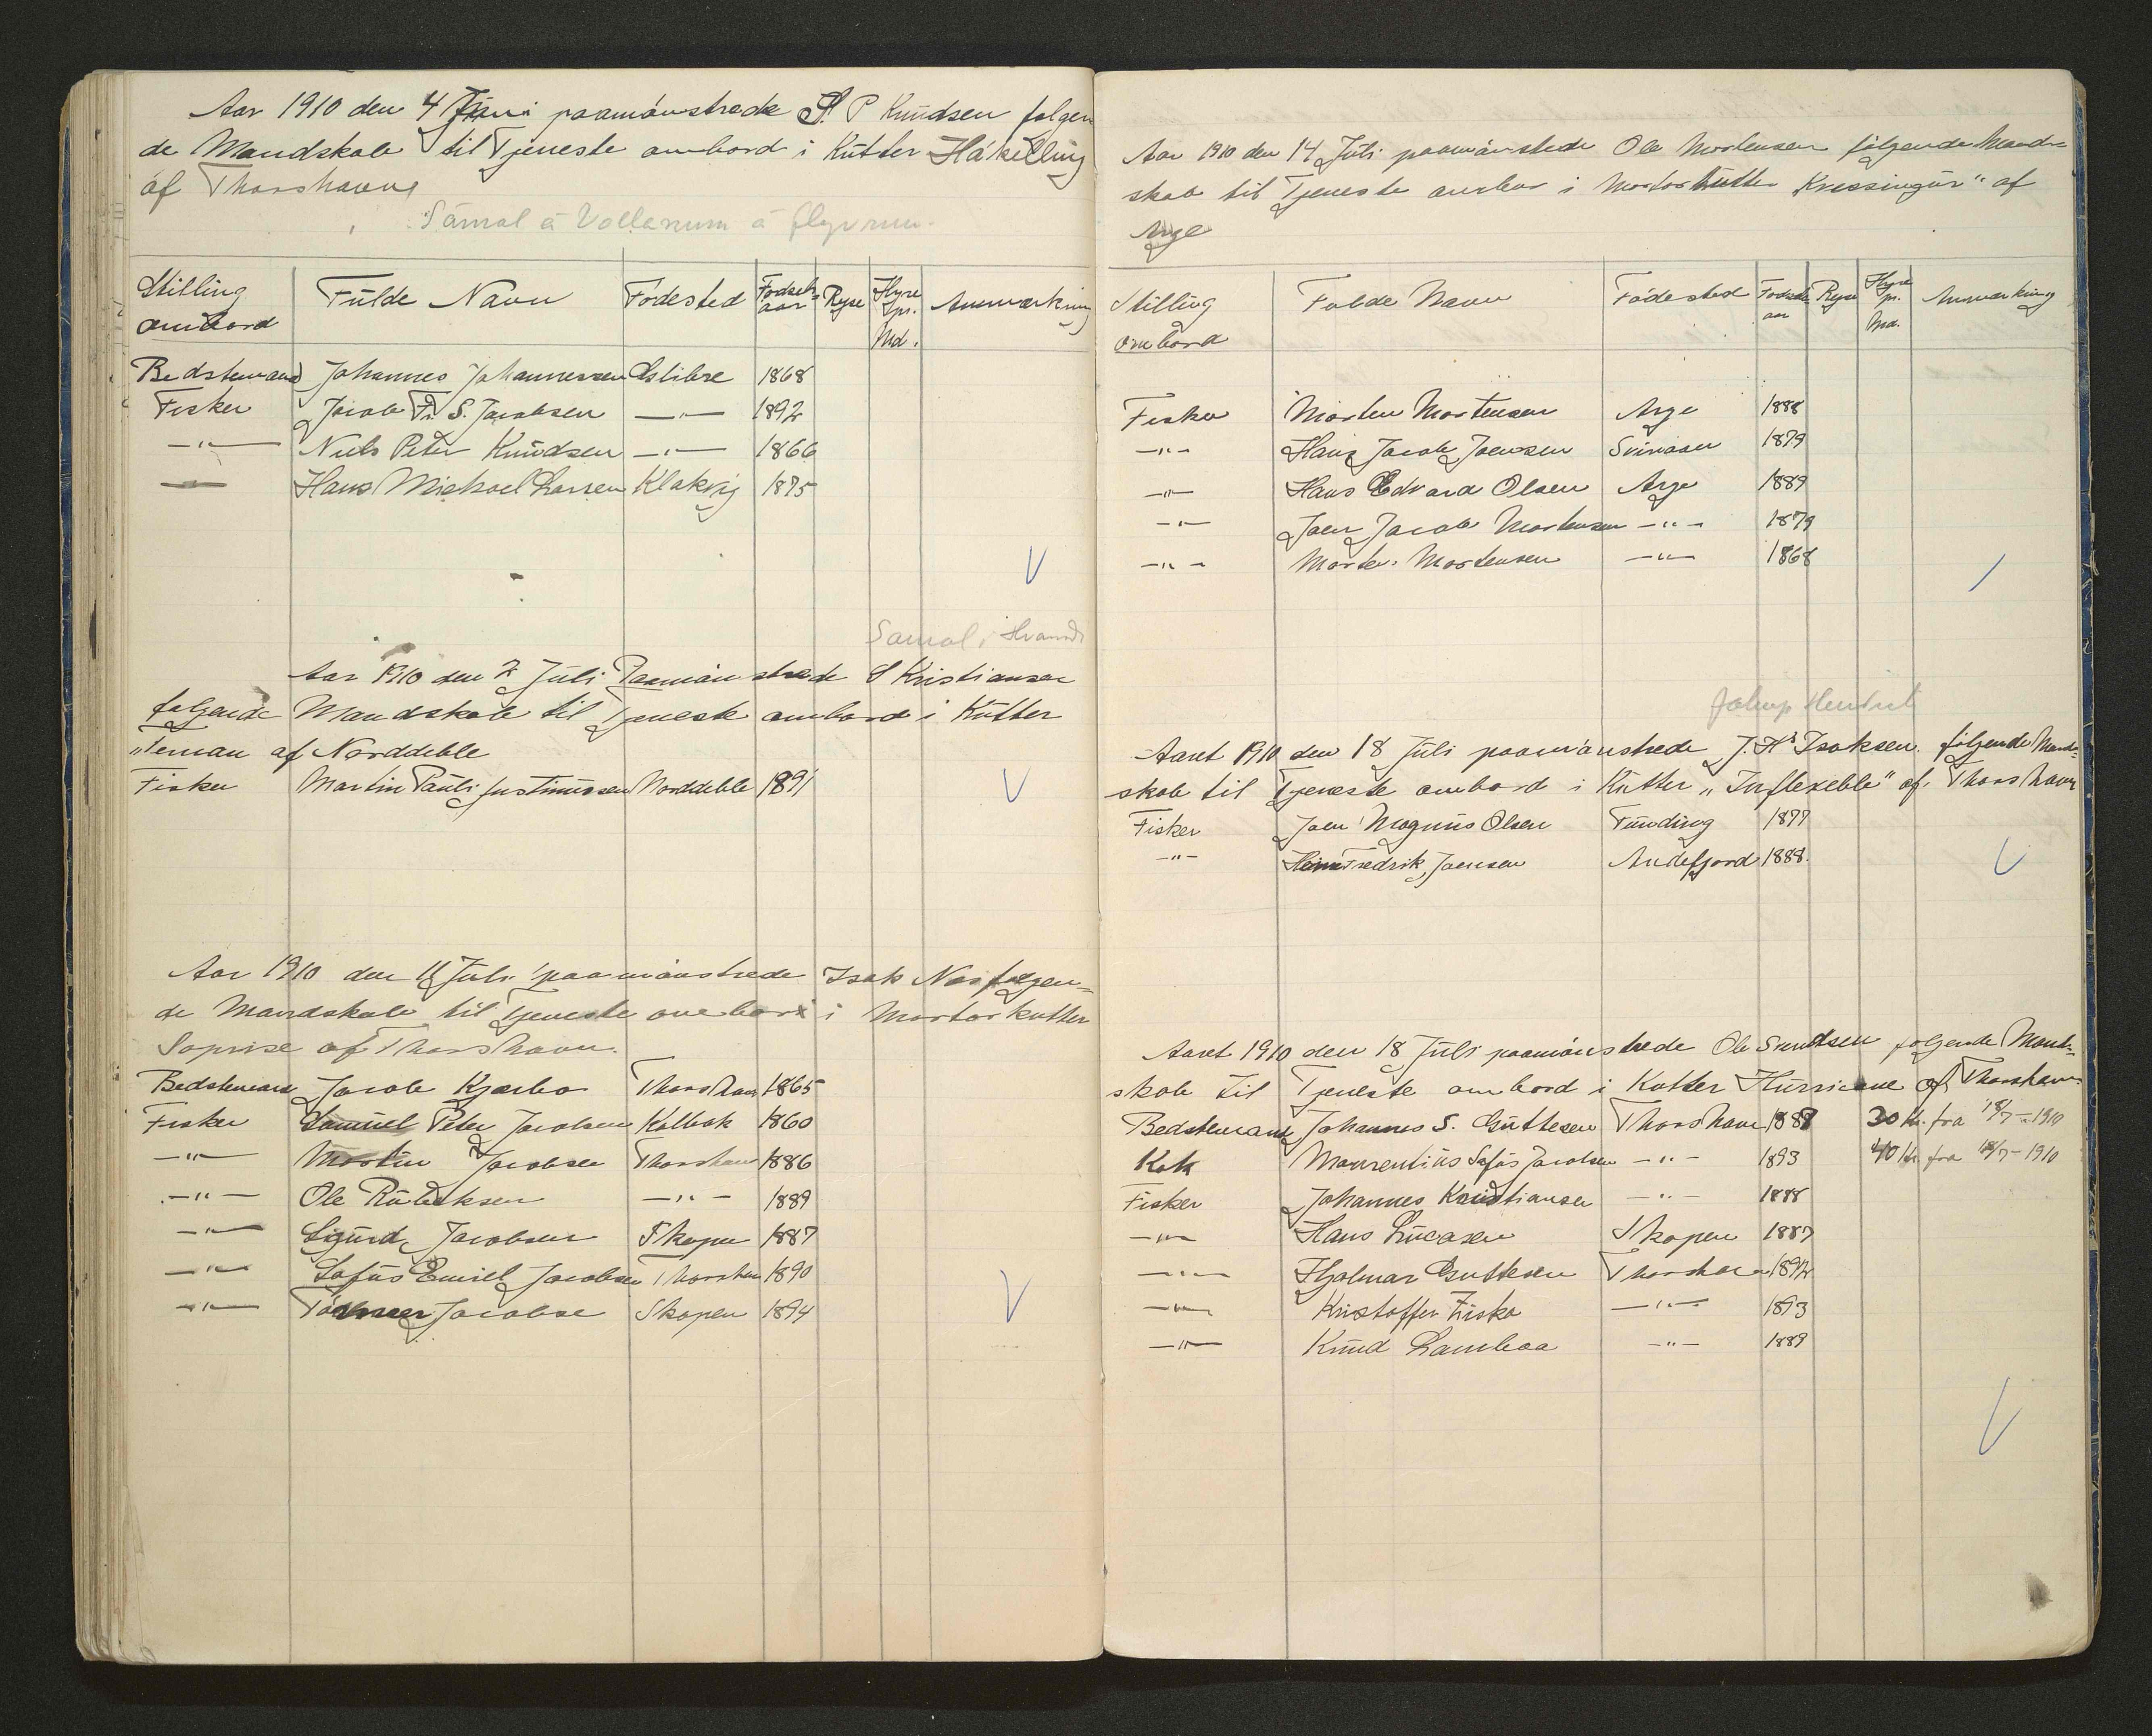 Aar 1910 den 4 Juni paamönstrede S. P Knudsen følgen
de Mandskab til Tjeneste ombord i Kutter Hákelling
af Thorshavn
Sámal á Vøllanum á Glyvrum.
Stilling ombord Fulde Navn Födested Fødsels aar Ryse Hyre pr. Md. Anmærkning
Bedstemand Johannes Johannessen Estibre 1868
Fisker Jacob Fr. S. Jacobsen —"— 1892
—"— Niels Peter Knudsen —"— 1866
— Hans Michael Larsen Klakvig 1875
Sámal i Hvannds
Aar 1910 den 2 Juli Paamönstrede S Kristiansen
følgende Mandskab til Tjeneste ombord i Kutter
"Ternan af Norddeble
Fisker Martin Pauli Justinussen Norddeble 1891
Aar 1910 den 11 Juli paamönstrede Isak Næs følgen=
de Mandskab til Tjeneste ombord i Mortorkutter
Soprise af Thorshavn.
Bedstemand Jacob Kjærbo Thorshavn 1865
Fisker Samuel Peter Jacobsen Kalbak 1860
—"— Mortin Jacobsen Thorshavn 1886
—"— Ole Rubeksen —"— 1889
—"— Sigurd Jacobsen Skopen 1887
—"— Sofus Emiel Jacobsen Thorshavn 1890
—"— Jacobse Skopen 1894
Aar 1910 den 14 Juli paamönstede Ole Mortensen følgende Mand=
skab til Tjeneste ombor i Mortorkutter Kressingur" af
Arge
Stilling ombord Fulde Navn Födested Fødsels aar Ryse Hyre pr. Md. Anmærkning
Fisker Morten Mortensen Arge 1888
—"— Hans Jacob Joensen Svinaaer 1879
—"— Hans Edvard Olsen Arge 1889
—"— Joen Jacob Mortensen —"— 1879
—"— Morten Mortensen —"— 1868
Jákup Hendrik
Aaret 1910 den 18 Juli paamönstrede J. Hk Isaksen følgende Mand=
skab til Tjeneste ombord i Kutter "Inflexeble" af Thorshavn
Fisker Joen Magnus Olsen Funding 1877
—"— Fredrik Joensen Andefjord 1888.
Aaret 1910 den 18 Juli paamönstrede Ole Simdsen følgende Mand=
skab til Tjeneste ombord i Kutter Hurricane af Thorshavn
Bedstemand Johannes S. Guttesen Thorshavn 1887 30 Kr. fra 18/7-1910
Kok Maurentius Sofus Jacobsen —"— 1893 40 Kr. fra 18/7-1910
Fisker Johannes Kristiansen —"— 1888
—"— Hans Lucasen Skopen 1887
—"— Hjalmar Guttesen Thorshavn 1892
—"— Kristoffer Ziska —"— 1893
—"— Knud Lamboa —"— 1889